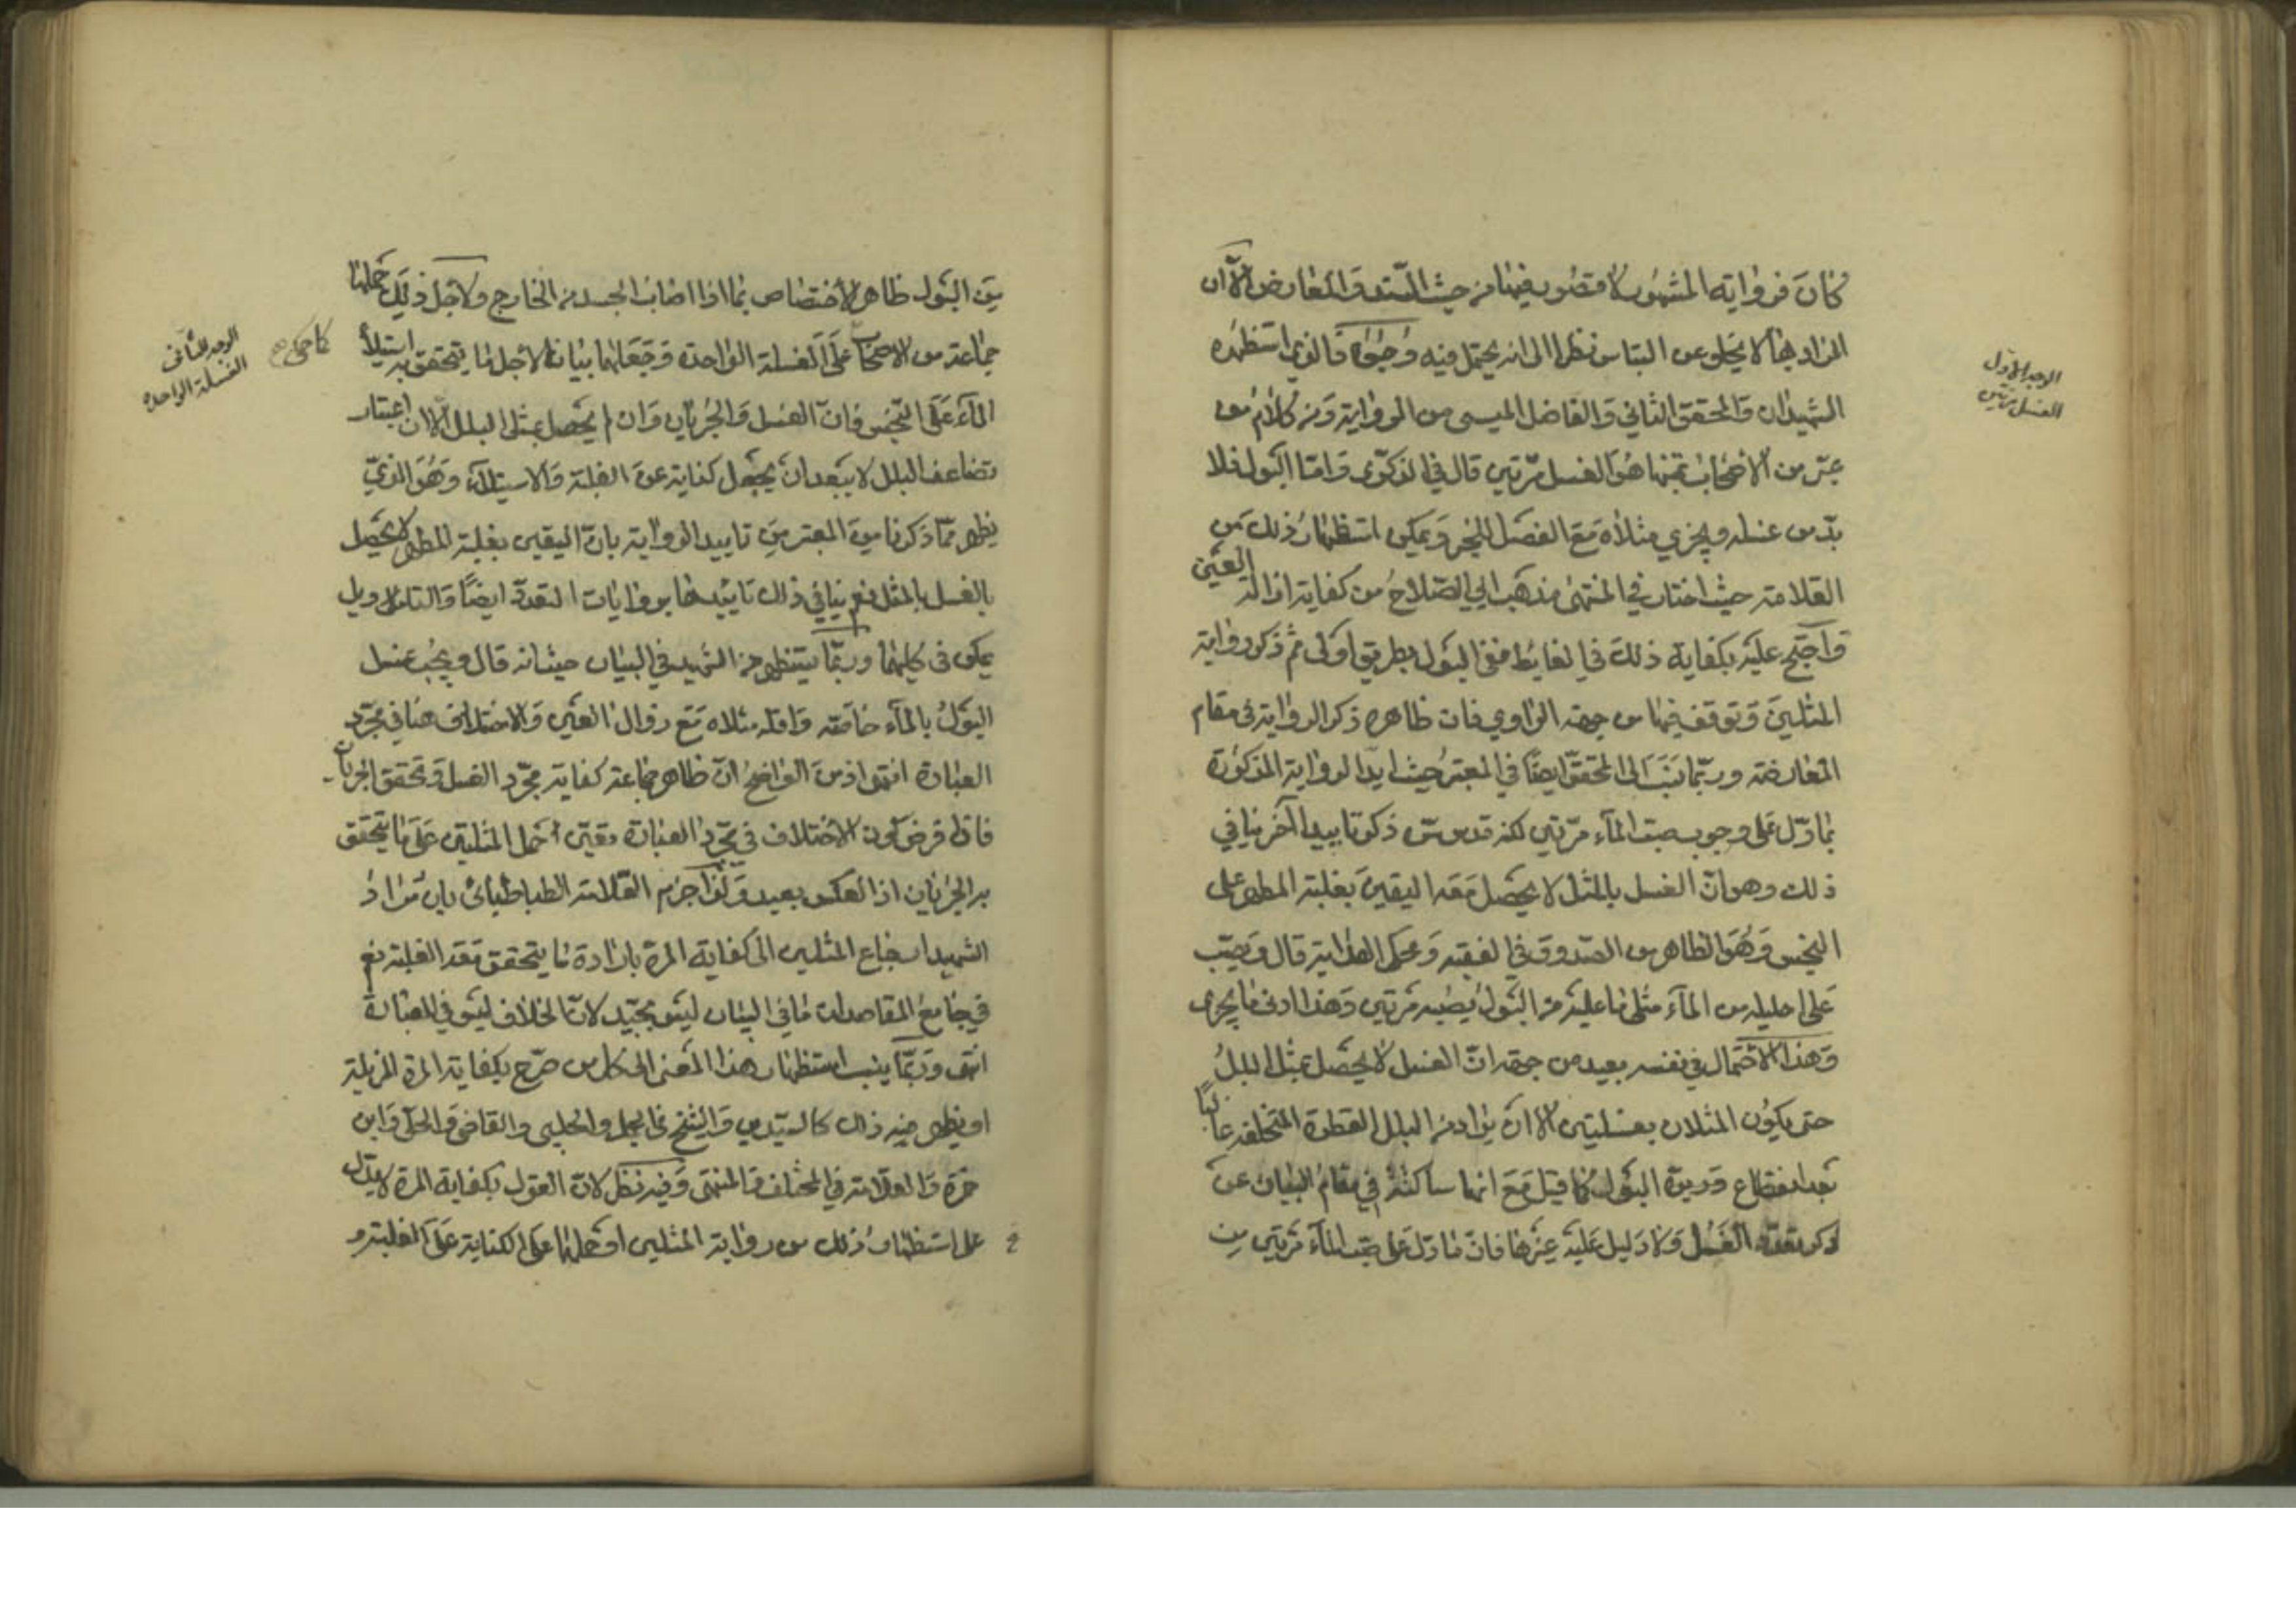 كان فرواية المشهور لا قصور فيها من حيث السند والمعارض الا ان
المراد بها لا يخلو عن التباس نظرا الى انه يحتمل فيه وجوها فالذي استظهره
الشهيدان والمحقق الثاني والفاضل الميسي من الرواية ومن كلام من
عبر من الاصحاب بمتنها هو الغسل مرتين قال في الذكرى واما البول فلا
بد من غسله ويجزي مثلاه مع الفصل للخبر ويمكن استظهار ذلك من
العلامة حيث اختار في المنتهى مذهب ابي الصلاح من كفاية ازالة العين
واحتج عليه بكفاية ذلك في الغايط ففي البول بطريق اولى ثم ذكر رواية
المثلين وتوقف فيها من جهة الراوي فان ظاهره ذكر الرواية في مقام
المعارضة وربما ينسب الى المحقق ايضا في المعتبر حيث ايد الرواية المذكورة
بما دل على وجوب صب الماء مرتين لكنه قدس سره ذكر تاييدا آخر ينافي
ذلك وهو ان الغسل بالمثل لا يحصل معه اليقين بغلبة المطهر على
النجس وهو الظاهر من الصدوق في الفقيه ومحكي الهداية قال ويصب
على احليله من الماء مثلي ما عليه من البول يصبه مرتين وهذا ادنى ما يجزي
وهذا الاحتمال في نفسه بعيد من جهة ان الغسل لا يحصل بمثل البلل
حتى يكون المثلان بغسلتين الا ان يراد من البلل القطرة المتخلفة غالبًا
بعد انقطاع دريرة البول كما قيل مع انها ساكتة في مقام البيان عن
ذكر تعدد الغسل ولا دليل عليه غيرها فان ما دل على صب الماء مرتين من
الوجه الاول
الغسل مرتين
بين البول ظاهر الاختصاص بما اذا اصاب الجسد من الخارج ولاجل ذلك حملها
جماعة من الاصحاب على الغسلة الواحدة وجعلها بيانا لاجل ما يتحقق به استيلاء
الماء على النجس فان الغسل والجريان وان لم يحصل بمثل البلل الا ان اعتبار
تضاعف البلل لا يبعد ان يجعل كناية عن الغلبة والاستيلاء وهو الذي
يظهر مما ذكرنا من المعتبر من تاييد الرواية بان اليقين بغلبة المطهر لا يحصل
بالغسل بالمثل نعم ينافي ذلك تاييدها بروايات التعدد ايضًا والتاويل
يمكن في كليهما وربما يستظهر من الشهيد في البيان حيث انه قال ويجب غسل
البول بالماء خاصة واقله مثلاه مع زوال العين والاختلاف هنا في مجرد
العبارة انتهى اذ من الواضح ان ظاهر جماعة كفاية مجرد الغسل وتحقق الجريان
فاذا فرض كون الاختلاف في مجرد العبارة تعين حمل المثلين على ما يتحقق
به الجريان اذ العكس بعيد ولذا جزم العلامة الطباطبائي بان مراد
الشهيد ارجاع المثلين الى كفاية المرة بارادة ما يتحقق معه الغلبة نعم
في جامع المقاصد ان ما في البيان ليس بجيد لان الخلاف ليس في العبارة
انتهى وربما ينسب استظهار هذا المعنى الى كل من صرح بكفاية المرة المزيلة
او يظهر منه ذلك كالسيدين والشيخ في الجمل والحلبي والقاضي والحلي وابن
حمزة والعلامة في المختلف والمنتهى وفيه نظر لان القول بكفاية المرة لا يدل
على استظهار ذلك من رواية المثلين او حملها على الكناية على الغلبة و
الوجه الثاني
الغسلة الواحده
كما حكي